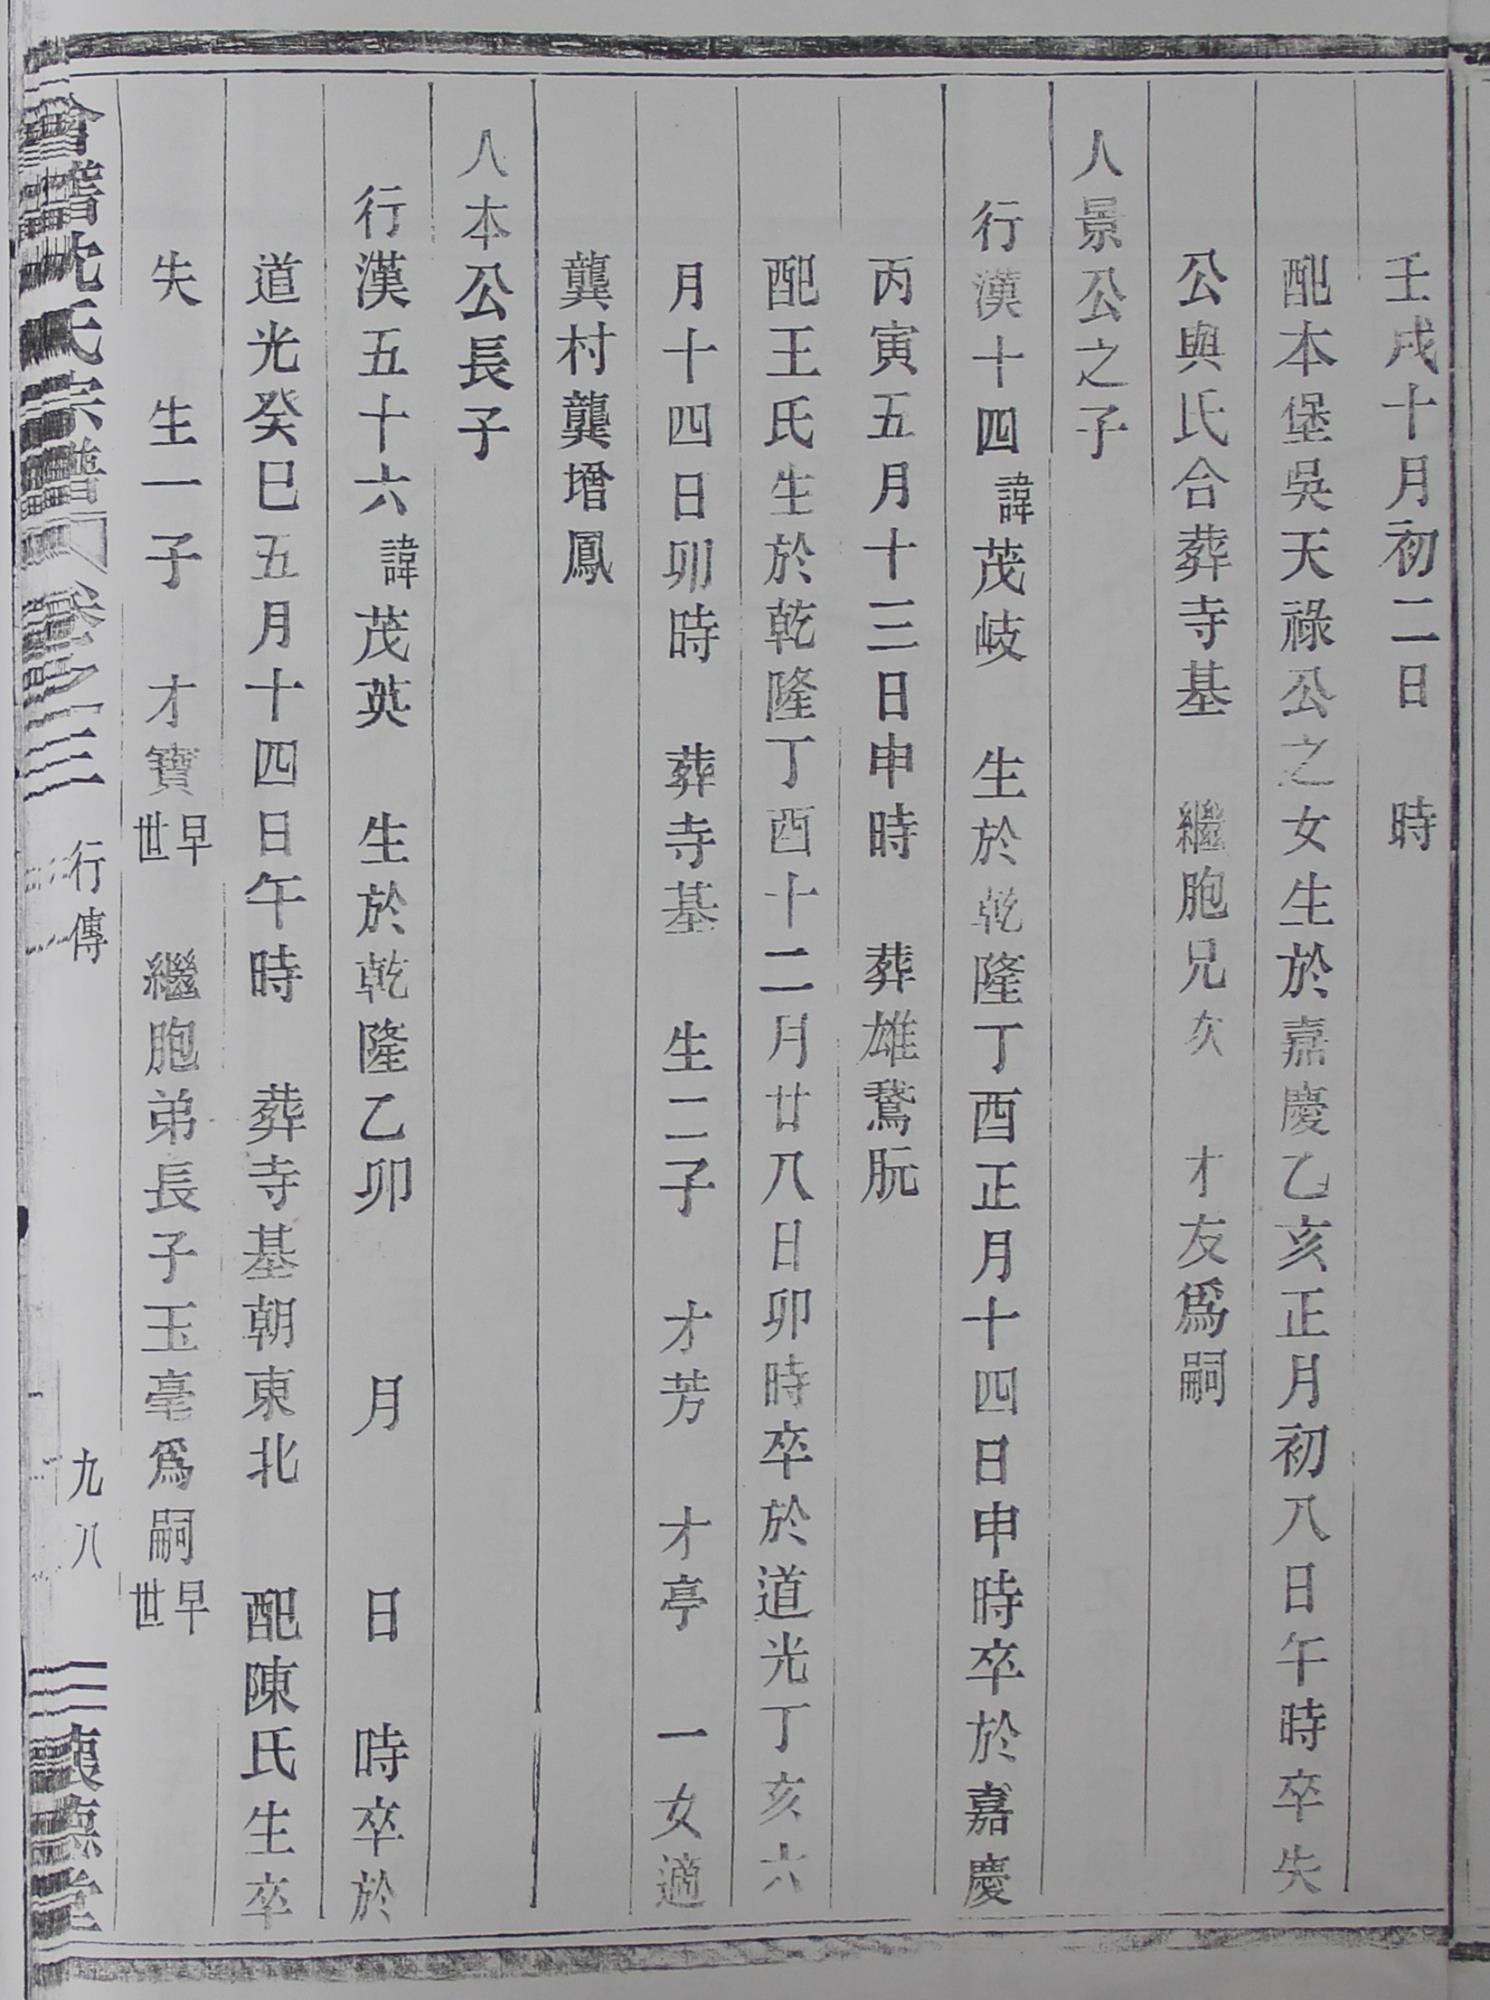 壬戌十月初二日　時
配本堡吳天祿公之女生於嘉慶乙亥正月初八日午時卒失
公與氏合葬寺基　繼胞兄次　才友爲嗣
人景公之子
行漢十四諱茂岐　生於乾隆丁酉正月十四日申時卒於嘉慶
丙寅五月十三日申時　葬雄鵞朊
配王氏生於乾隆丁酉十二月廿八日卯時卒於道光丁亥六
月十四日卯時　葬寺基　生二子　才芳　才亭　一女適
龔村龔增鳳
人本公長子
行漢五十六諱茂英　生於乾隆乙卯　月　日　時卒於
道光癸巳五月十四日午時　葬寺基朝東北　配陳氏生卒
失　生一子　才寶早世　繼胞弟長子玉亳爲嗣早世
會稽沈氏宗譜　卷之三　行傳　九八　德堂